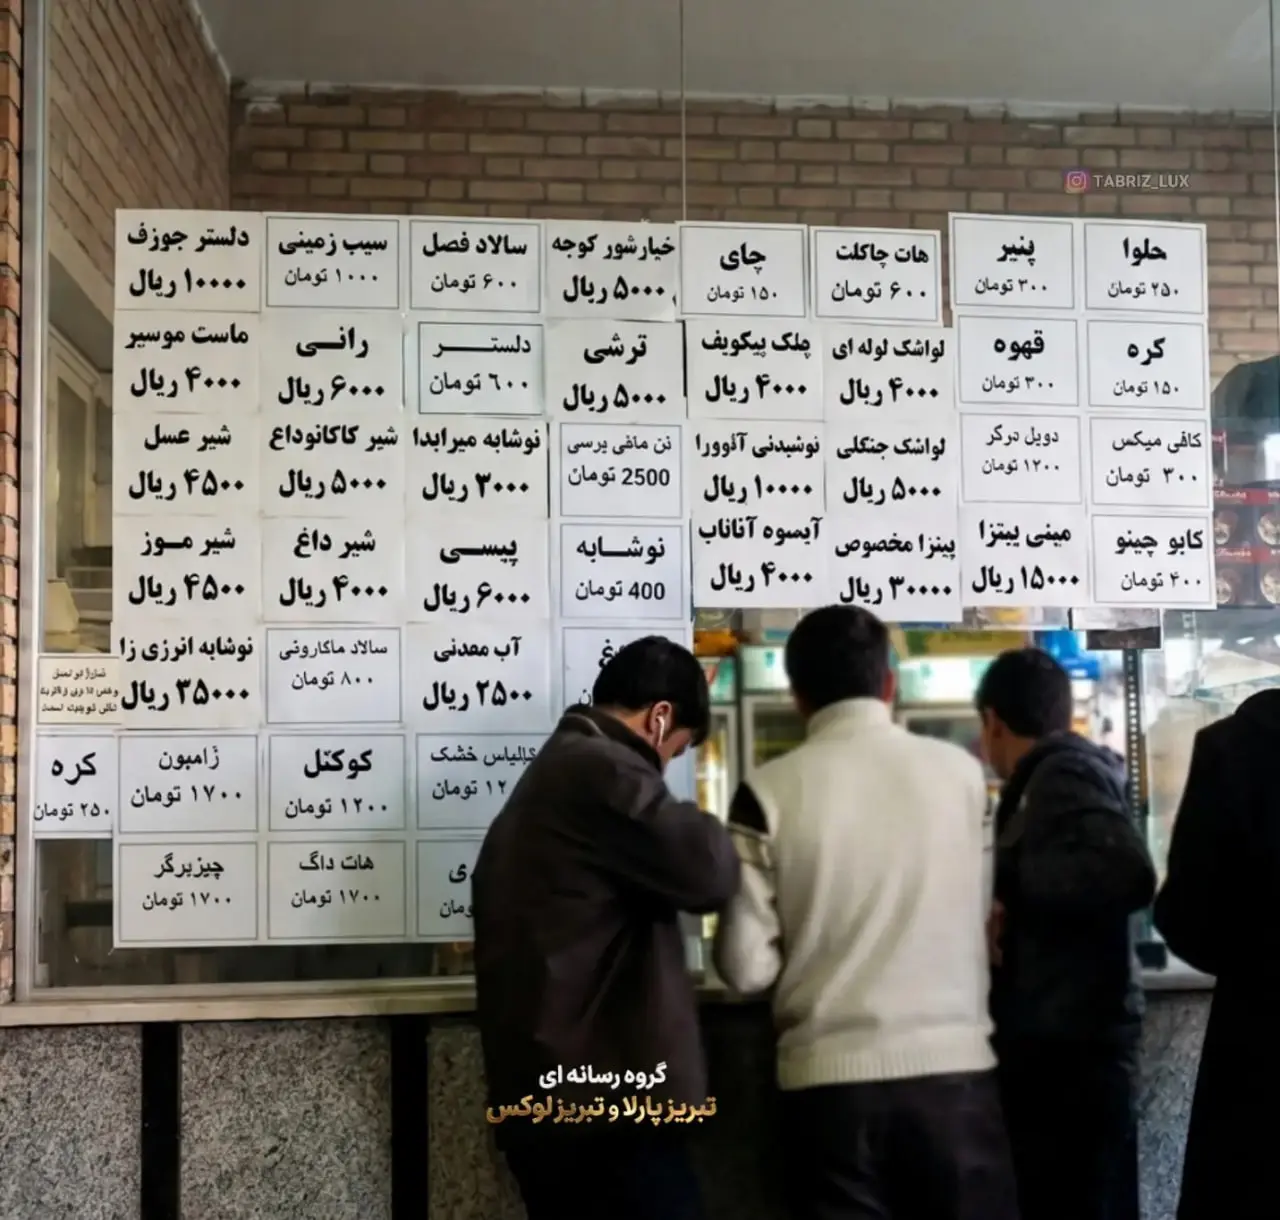 TABRIZ_LUX
حلوا
۲۵۰ تومان
پنیر
۳۰۰ تومان
هات چاکلت
۶۰۰ تومان
چای
۱۵۰ تومان
خیارشور کوجه
۵۰۰۰ ریال
سالاد فصل
۶۰۰ تومان
سیب زمینی
۱۰۰۰ تومان
دلستر جوزف
۱۰۰۰۰ ریال
کره
۱۵۰ تومان
قهوه
۳۰۰ تومان
لواشک لوله ای
۴۰۰۰ ریال
چلک پیکویف
۴۰۰۰ ریال
ترشی
۵۰۰۰ ریال
دلستر
٦٠٠ تومان
رانی
۶۰۰۰ ریال
ماست موسیر
۴۰۰۰ ریال
کافی میکس
۳۰۰ تومان
دوبل درگر
۱۲۰۰ تومان
لواشک جنگلی
۵۰۰۰ ریال
نوشیدنی آئوورا
۱۰۰۰۰ ریال
2500 تومان
نوشابه میرابدا
۳۰۰۰ ریال
شیر کاکائوداغ
۵۰۰۰ ریال
شیر عسل
۴۵۰۰ ریال
کابو چینو
۴۰۰ تومان
مینی پیتزا
۱۵۰۰۰ ریال
پیتزا مخصوص
۳۰۰۰۰ ریال
آیسوه آناناب
۴۰۰۰ ریال
نوشابه
400 تومان
پیسی
۶۰۰۰ ریال
شیر داغ
۴۰۰۰ ریال
شیر موز
۴۵۰۰ ریال
آب معدنی
۲۵۰۰ ریال
سالاد ماکارونی
۸۰۰ تومان
نوشابه انرزی زا
۳۵۰۰۰ ریال
کالباس خشک
کوکتل
۱۲۰۰ تومان
ژامبون
۱۷۰۰ تومان
کره
۲۵۰ تومان
هات داگ
۱۷۰۰ تومان
چیزبرگر
۱۷۰۰ تومان
گروه رسانه ای
تبریز پارلا و تبریز لوکس